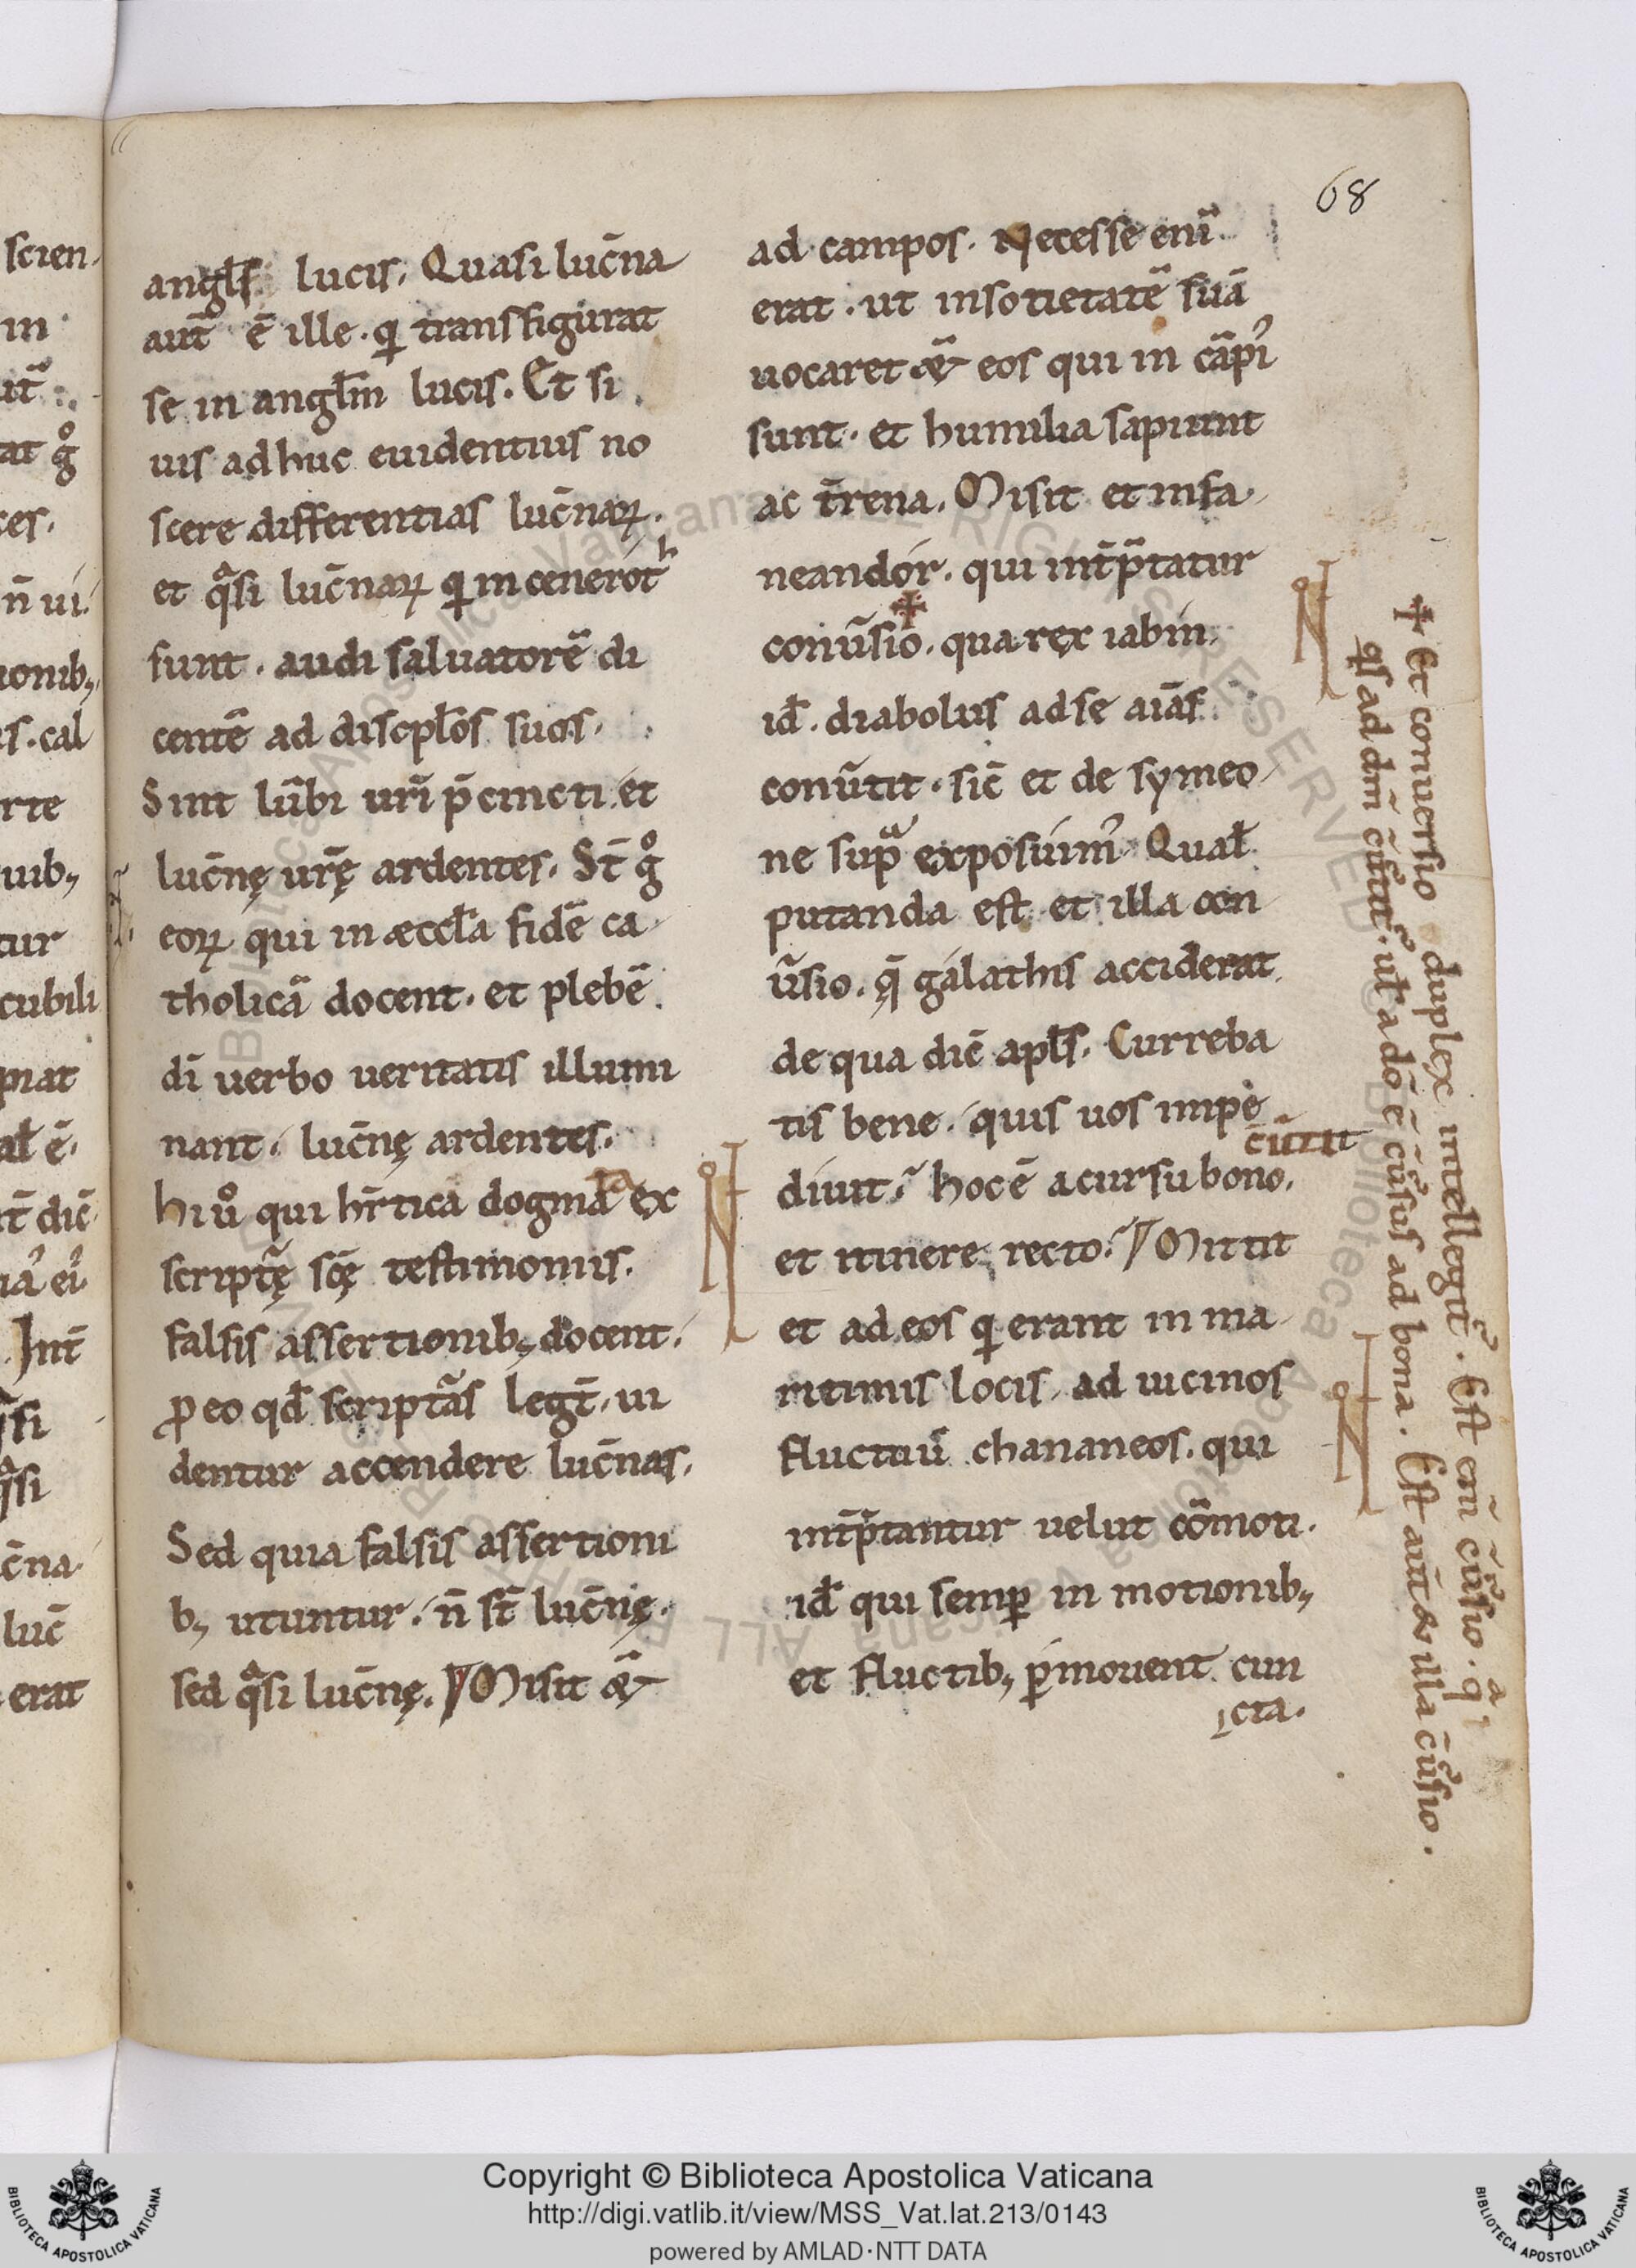 68
angls̄ lucis. Quasi luc̄na
aut̄ ē ille. qi transfigurat
se in angl̄m lucis. Et si
uis adhuc euidentius no
scere differentias luc̄naꝝ.
et qᵃsi luc̄naꝝ qi in ceneroth
sunt. audi saluatorē di
centē ad discipl̄os suos.
Sint lūbi ur̄i p̄cincti. et
luc̄nę ur̄ę ardentes. St̄ gͦ
eoꝝ qui in æccl̄a fidē ca
tholicā docent. et plebē
dī uerbo ueritatis illumi
nant. luc̄nę ardentes.
hi uͦ qui hr̄tica dogmata ex
scriptᵃę sc̄ę testimoniis.
falsis assertionibꝫ docent.
ꝓ eo qd̄ scriptᵃs legt̄. ui
dentur accendere luc̄nas.
Sed quia falsis assertioni
bꝫ utuntur. n̄ st̄ luc̄nę.
sed qᵃsi luc̄nę. Misit &ᵃ
ad campos. Necesse eni̅
erat. ut in sotietatē suā
uocaret &ᵃ eos qui in cāpis
sunt. et humilia sapiunt
ac t̄rena. Misit et in fa
neandor. qui int̄pᵃtatur
conūsio. qua rex iabin.
id̄. diabolus ad se aīas
conūtit. sic̄ et de symeo
ne supᵃ exposuimꝰ Qual̄
putanda est et illa con
ūsio. q̄ galathis acciderat
de qua dic̄ apl̄s. Curreba
tis bene. quis uos impe
diuit. hoc ē a cursu bono.
cūtit
et itinere recto. Mittit
et ad eos qi erant in ma
ritimis locis. ad uicinos
fluctuū chananeos. qui
int̄pᵃtantur uelut cōmoti.
id̄ qui semꝑ in motionibꝫ
et fluctibꝫ ꝑmouent cun
cta.
✝ Et conuersio duplex intellegit᷑. Est eni̅ cūsio. qᵃ
qis ad dm̄ cūtit᷑. ut a dō ē cūsus ad bona. Est aut̄ & illa cūsio.
scien
in
at gͦ
ces.
n̄ ui
ionibꝫ
s. cal
rte
uibꝫ
tur
cubili
piat
al̄ ē.
t̄ dic̄
Int̄
qᵃsi
qᵃsi
c̄na
luc̄
erat
Copyright © Biblioteca Apostolica Vaticana
http://digi.vatlib.it/view/MSS_Vat.lat.213/0143
powered by AMLAD·NTT DATA
BIBLIOTECA APOSTOLICA VATICANA
BIBLIOTECA APOSTOLICA VATICANA